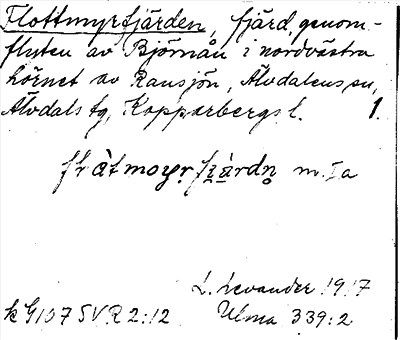 Flottmyrfjärden, fjärd, genom-
flyten av Björnån i nordvästra
hörnet av Ransjön, Älvdalens sn,
Älvdals tg, Kopparbergs l. 1.
m. I a
L. Levander 1917
k G107 SVR 2:12 Ulma 339:2